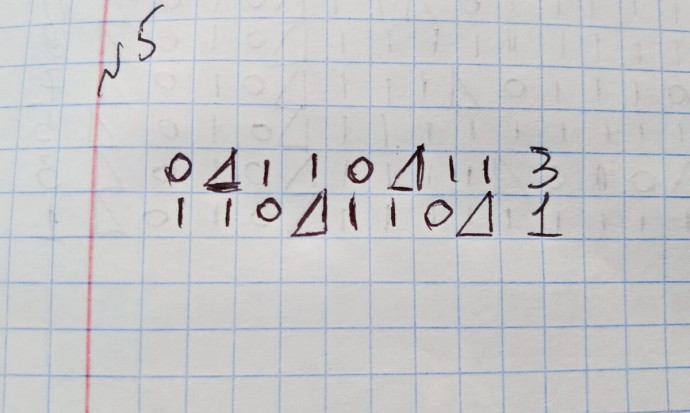 №5
0 Δ 1 1 0 Δ 1 1 3
1 1 0 Δ 1 1 0 Δ 1